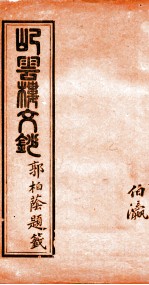 伯瀛
屺雲樓文鈔
郭柏蔭題籤